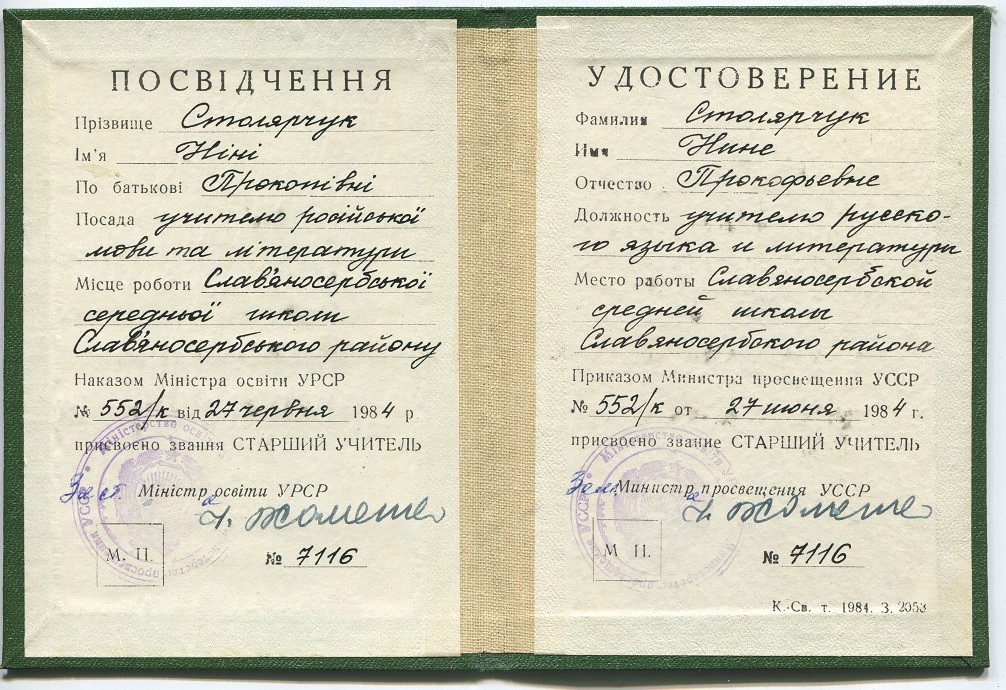 ПОСВІДЧЕННЯ
Прізвище Столярчук
Ім'я Ніні
По батькові Прокопівні
Посада учителю російської
мови та літератури
Місце роботи Слав'яносербської
середньої школи
Слав'яносербського району
Наказом Міністра освіти УРСР
№ 552/к від 27 червня 1984 р
присвоєно звання СТАРШИЙ УЧИТЕЛЬ
Заст. Міністр освіти УРСР
М. П.
№ 7116
УДОСТОВЕРЕНИЕ
Фамилия Столярчук
Имя Нине
Отчество Прокофьевне
Должность учителю русско-
го языка и литературы
Место работы Славяносербской
средней школы
Славяносербского района
Приказом Министра просвещения УССР
№ 552/к от 27 июня 1984 г.
присвоено звание СТАРШИЙ УЧИТЕЛЬ
Зам. Министр просвещения УССР
М. П.
№ 7116
К.-Св. т. 1984. З. 2053